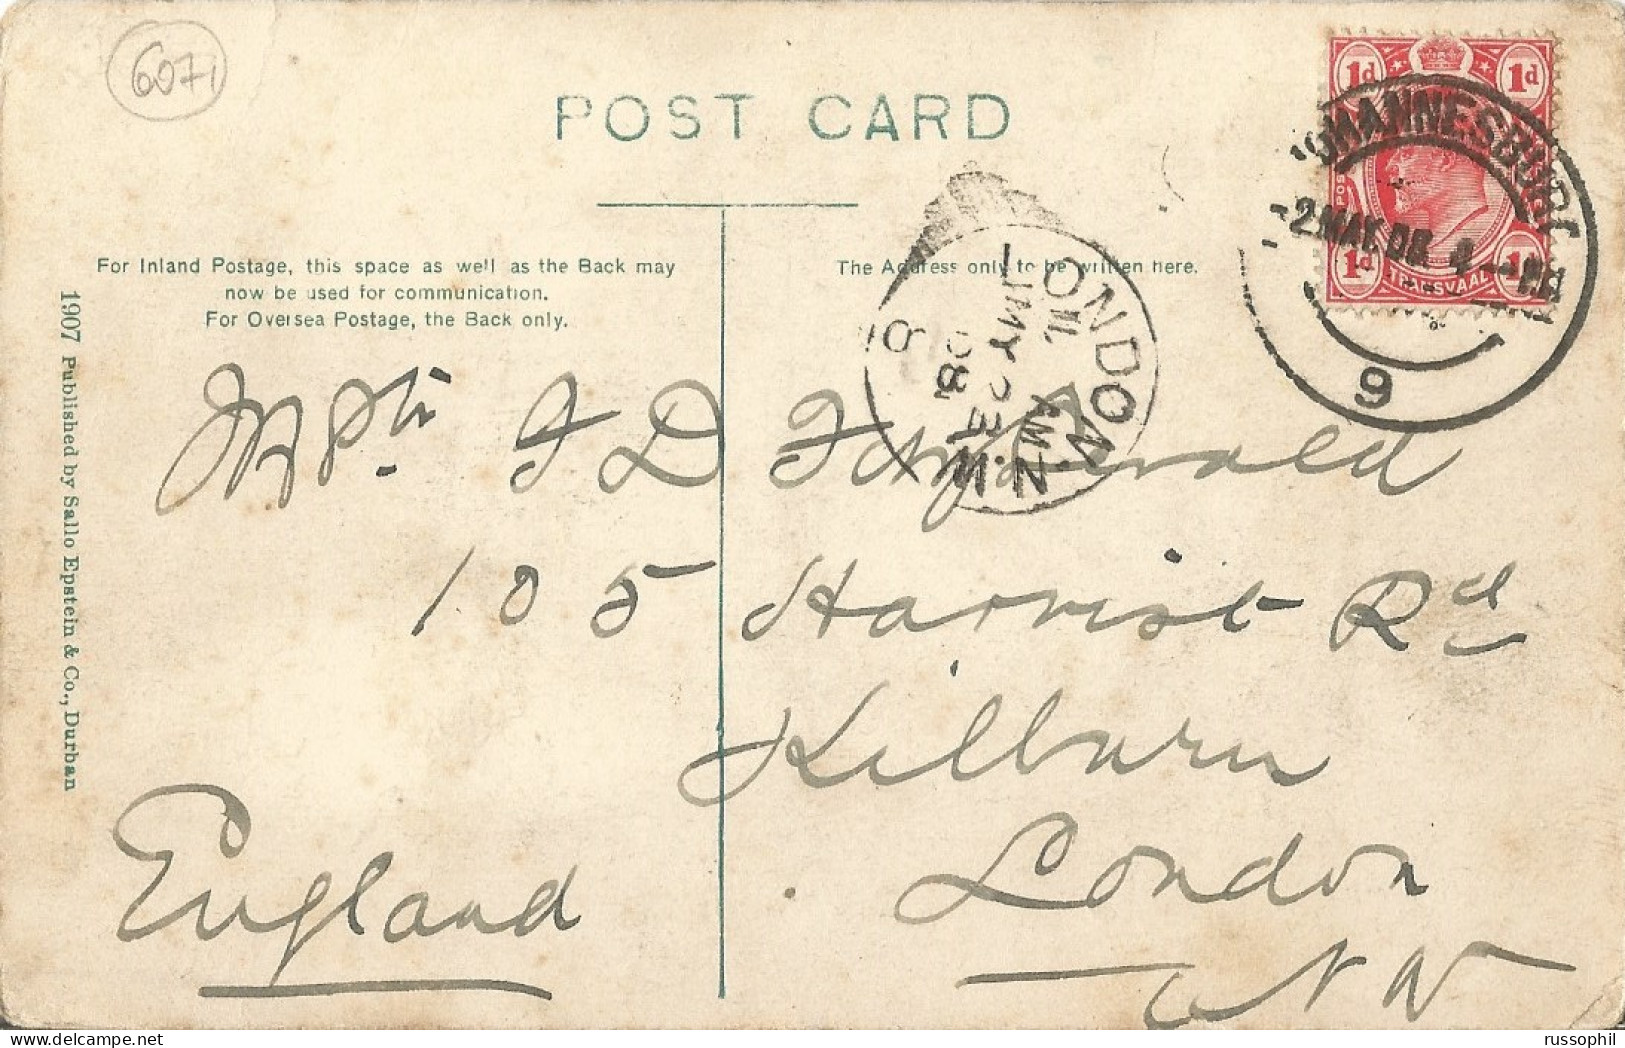 6071
POST CARD
For Inland Postage, this space as well as the Back may
now be used for communication.
For Oversea Postage, the Back only.
The Address only to be written here.
1d 1d
POS
1d 1d
TRANSVAAL
JOHANNESBURG
2 MAY. 08. 4
9
LONDON. N.W
AM
MY 2
08
1907 Published by Sallo Epstein & Co., Durban
J D Fitzgerald
105 Harvist Rd
Kilburn
London
N W
England
russophil